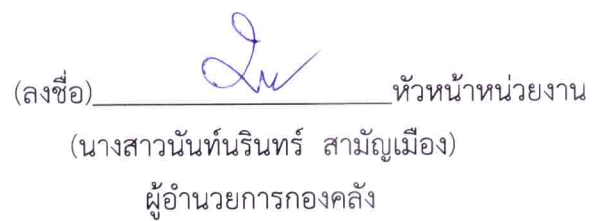 (ลงชื่อ)____________________หัวหน้าหน่วยงาน
(นางสาวนันท์นรินทร์ สามัญเมือง)
ผู้อำนวยการกองคลัง